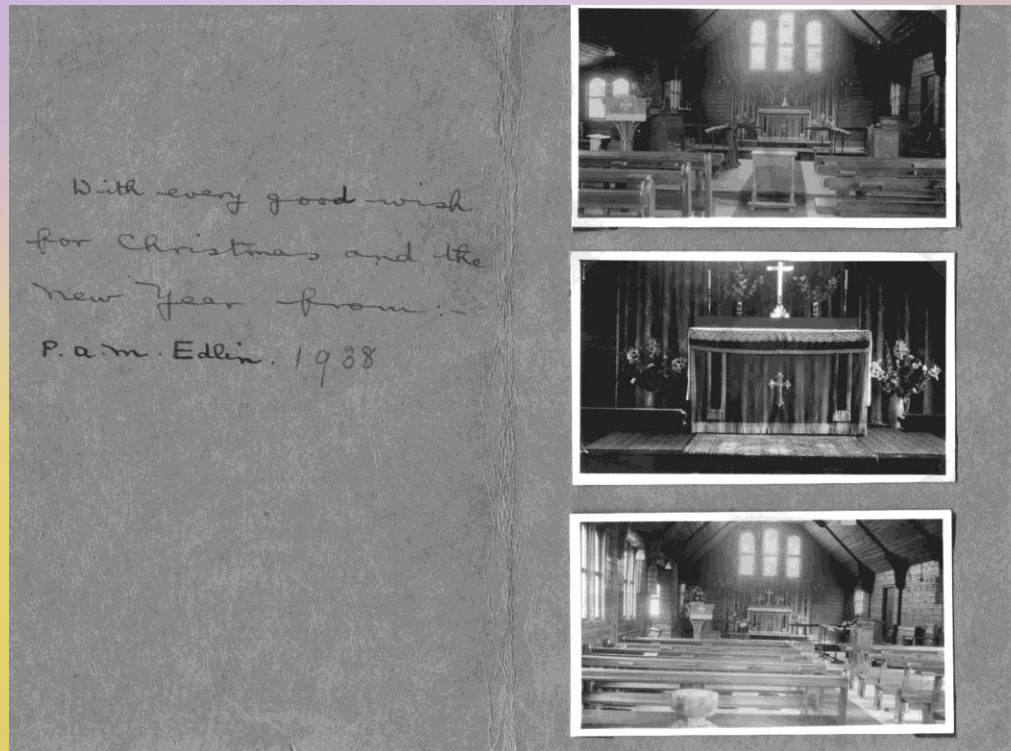 With every good wish
for Christmas and the
New Year from:-
P.a.m. Edlin. 1938